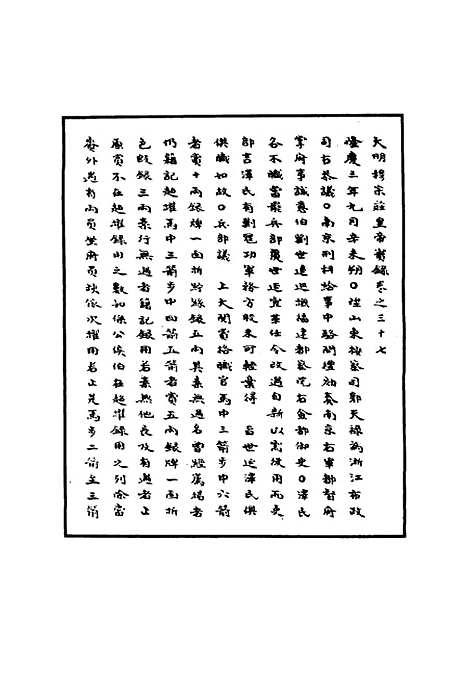 大明穆宗莊皇帝實錄卷之三十七
隆慶三年九月辛未朔○陞山東按察司鄭天祿為浙江布政
司右參議○南京刑科給事中駱問禮劾奏南京右軍都督府
掌府事誠意伯劉世延巡撫福建都察院右僉都御史○澤民
各不職當罷兵部覆世延宜革任令改過自新以需後用而吏
部言澤民有剿寇功軍務方殷未可輕棄得 旨世延澤民俱
供職如故○兵部議 上大閱賞格職官馬中三箭步中六箭
者賞十兩銀牌一面折鈔絲銀五兩其素無過名當經薦揚者
仍籍記超擢馬中三箭步中四箭五箭者賞五兩銀牌一面折
色段銀三兩素行無過者籍記錄用若素無他長及有過者止
願賞不在超擢錄用之數如係公侯伯在超擢錄用之列除當
賚外遇有兩員坐府員缺依次擢用者止是馬步二箭至三箭